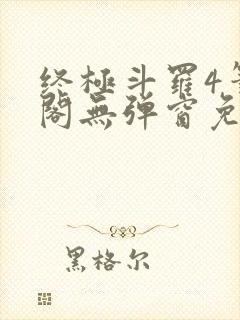 终極斗羅4
閣無弹窗免
黑格尔